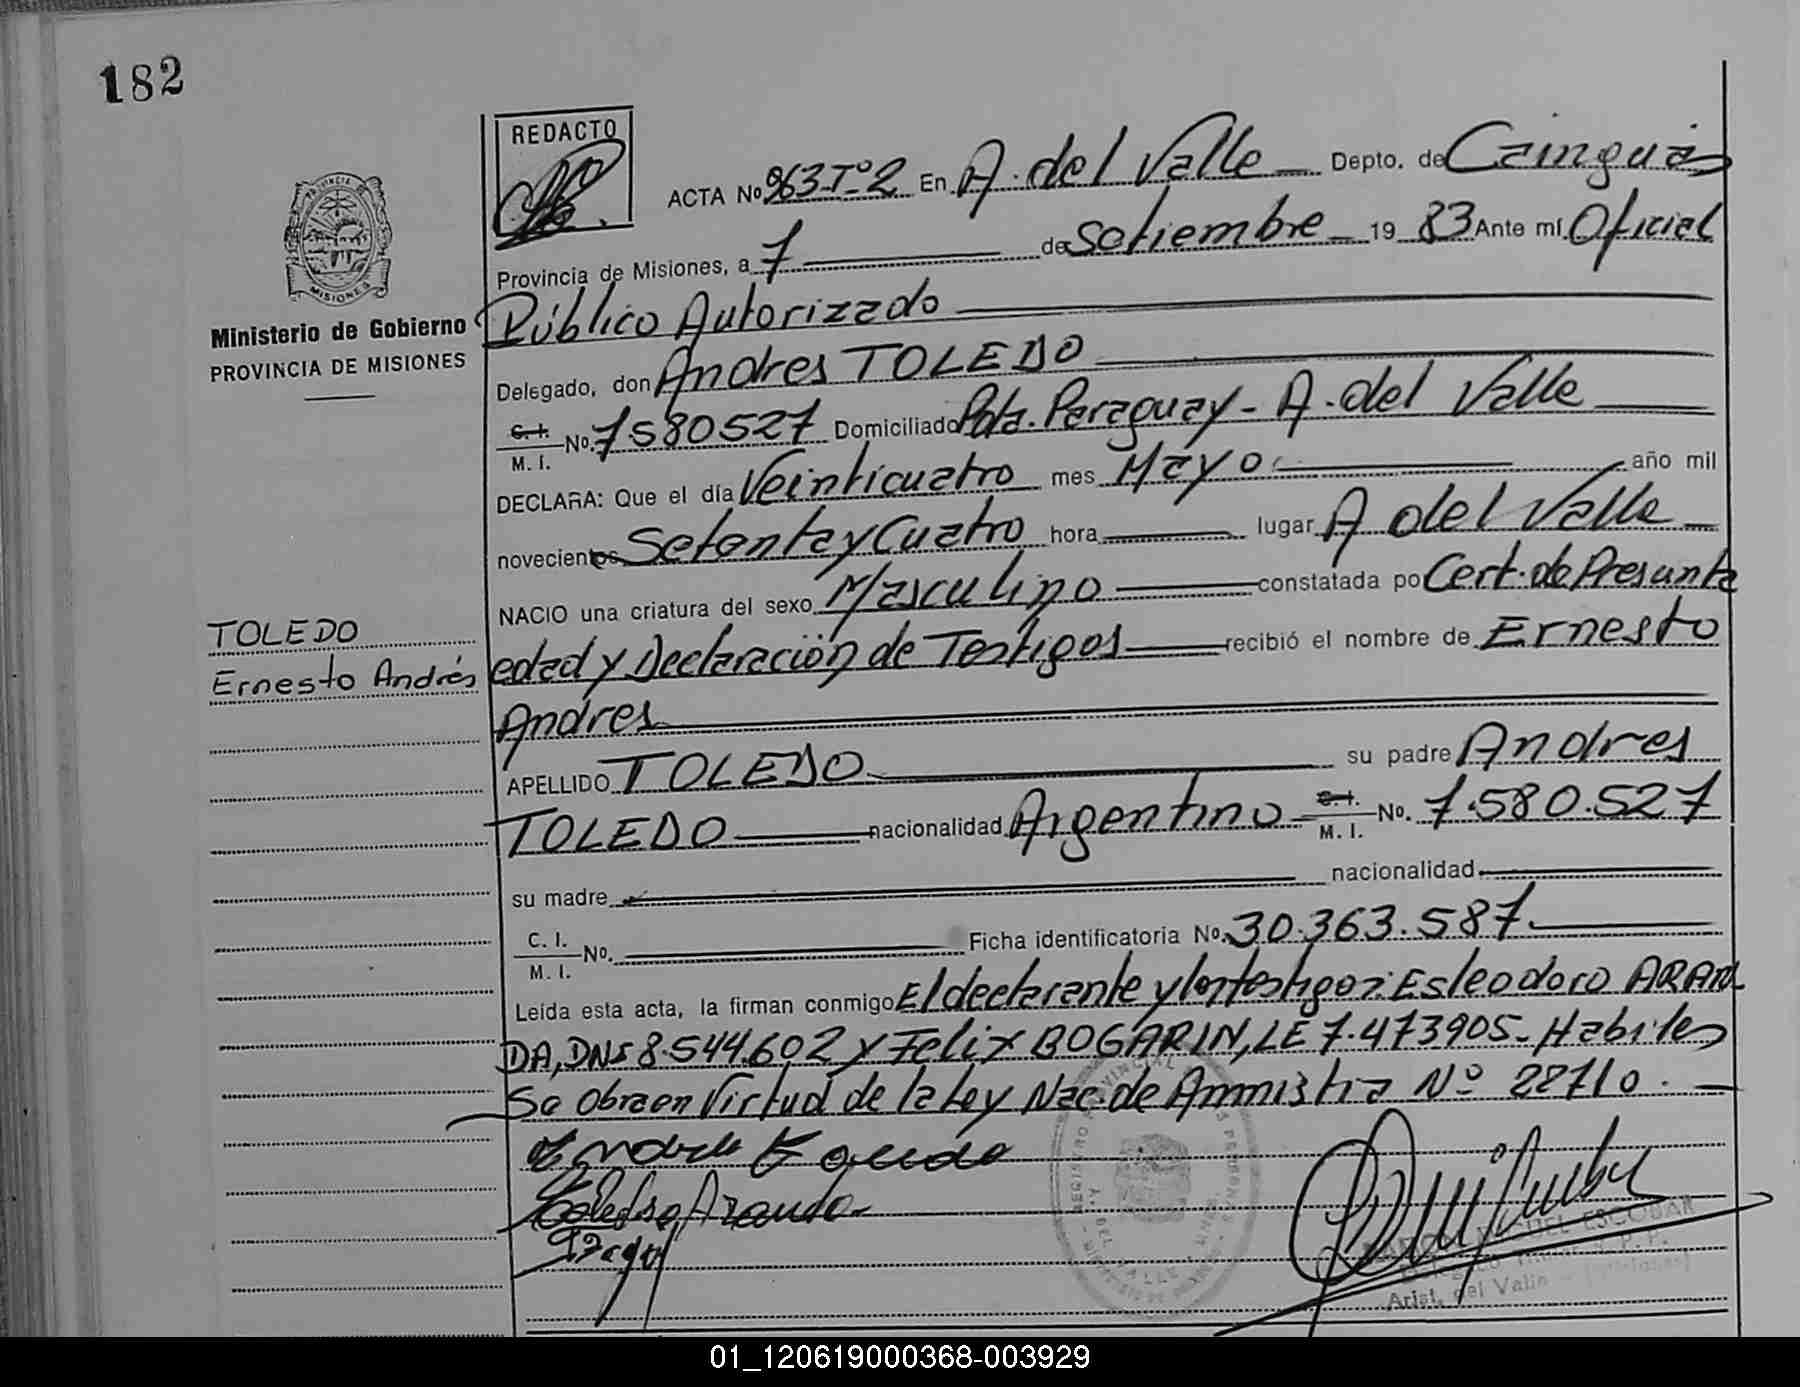 182
REDACTO
ACTA No 963-Tº2 En A. del Valle Depto. de Cainguás
Provincia de Misiones, a 7 de Setiembre 19 83 Ante mí Oficial
Público Autorizado
Delegado, don Andres TOLEDO
C. I. M. I. No. 7580527 Domiciliado Pda. Paraguay - A. del Valle
DECLARA: Que el día Veinticuatro mes Mayo año mil
novecientos Setenta y Cuatro hora lugar A del Valle
NACIO una criatura del sexo Masculino constatada po Cert. de Presunta
edad y Declaración de Testigos recibió el nombre de Ernesto
Andres
APELLIDO TOLEDO su padre Andres
TOLEDO nacionalidad Argentino C. I. M. I. No. 7.580.527
su madre nacionalidad
C. I. M. I. No. Ficha identificatoria No. 30.363.587.
Leída esta acta, la firman conmigo El declarante y los testigos: Esleodoro ARAN
DA, DNI 8.544.602 y Felix BOGARIN, LE 7.473905- Habiles
Se Obra en Virtud de la Ley Nac. de Amnistia Nº 22710.
PROVINCIA
MISIONES
Ministerio de Gobierno
PROVINCIA DE MISIONES
TOLEDO
Ernesto Andrés
MIGUEL ESCOBAR
Arist. del Valle
01_120619000368-003929